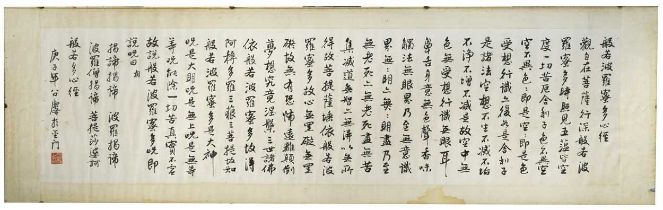 般若波羅蜜多心經
觀自在菩薩行深般若波
羅蜜多時照見五蘊皆空
度一切苦厄舍利子色不異空
空不異色色即是空空即是色
受想行識亦復如是舍利子
是諸法空想不生不滅不垢
不淨不增不減是故空中無
色無受想行識無眼耳
鼻舌身意無色聲香味
觸法無眼界乃至無意識
界無無明亦無無明盡乃至
無老死亦無老死盡無苦
集滅道無智亦無得以無所
得故菩提薩埵依般若波
羅蜜多故心無罣礙無罣
礙故無有恐怖遠離顛倒
夢想究竟涅槃三世諸佛
依般若波羅蜜多故得
阿耨多羅三藐三菩提故知
般若波羅蜜多是大神
呪是大明呪是無上呪是無等
等呪能除一切苦真實不虛
故說般若波羅蜜多呪即
說呪曰
揭諦揭諦 波羅揭諦
波羅僧揭諦 菩提莎婆訶
般若多心經
庚子年